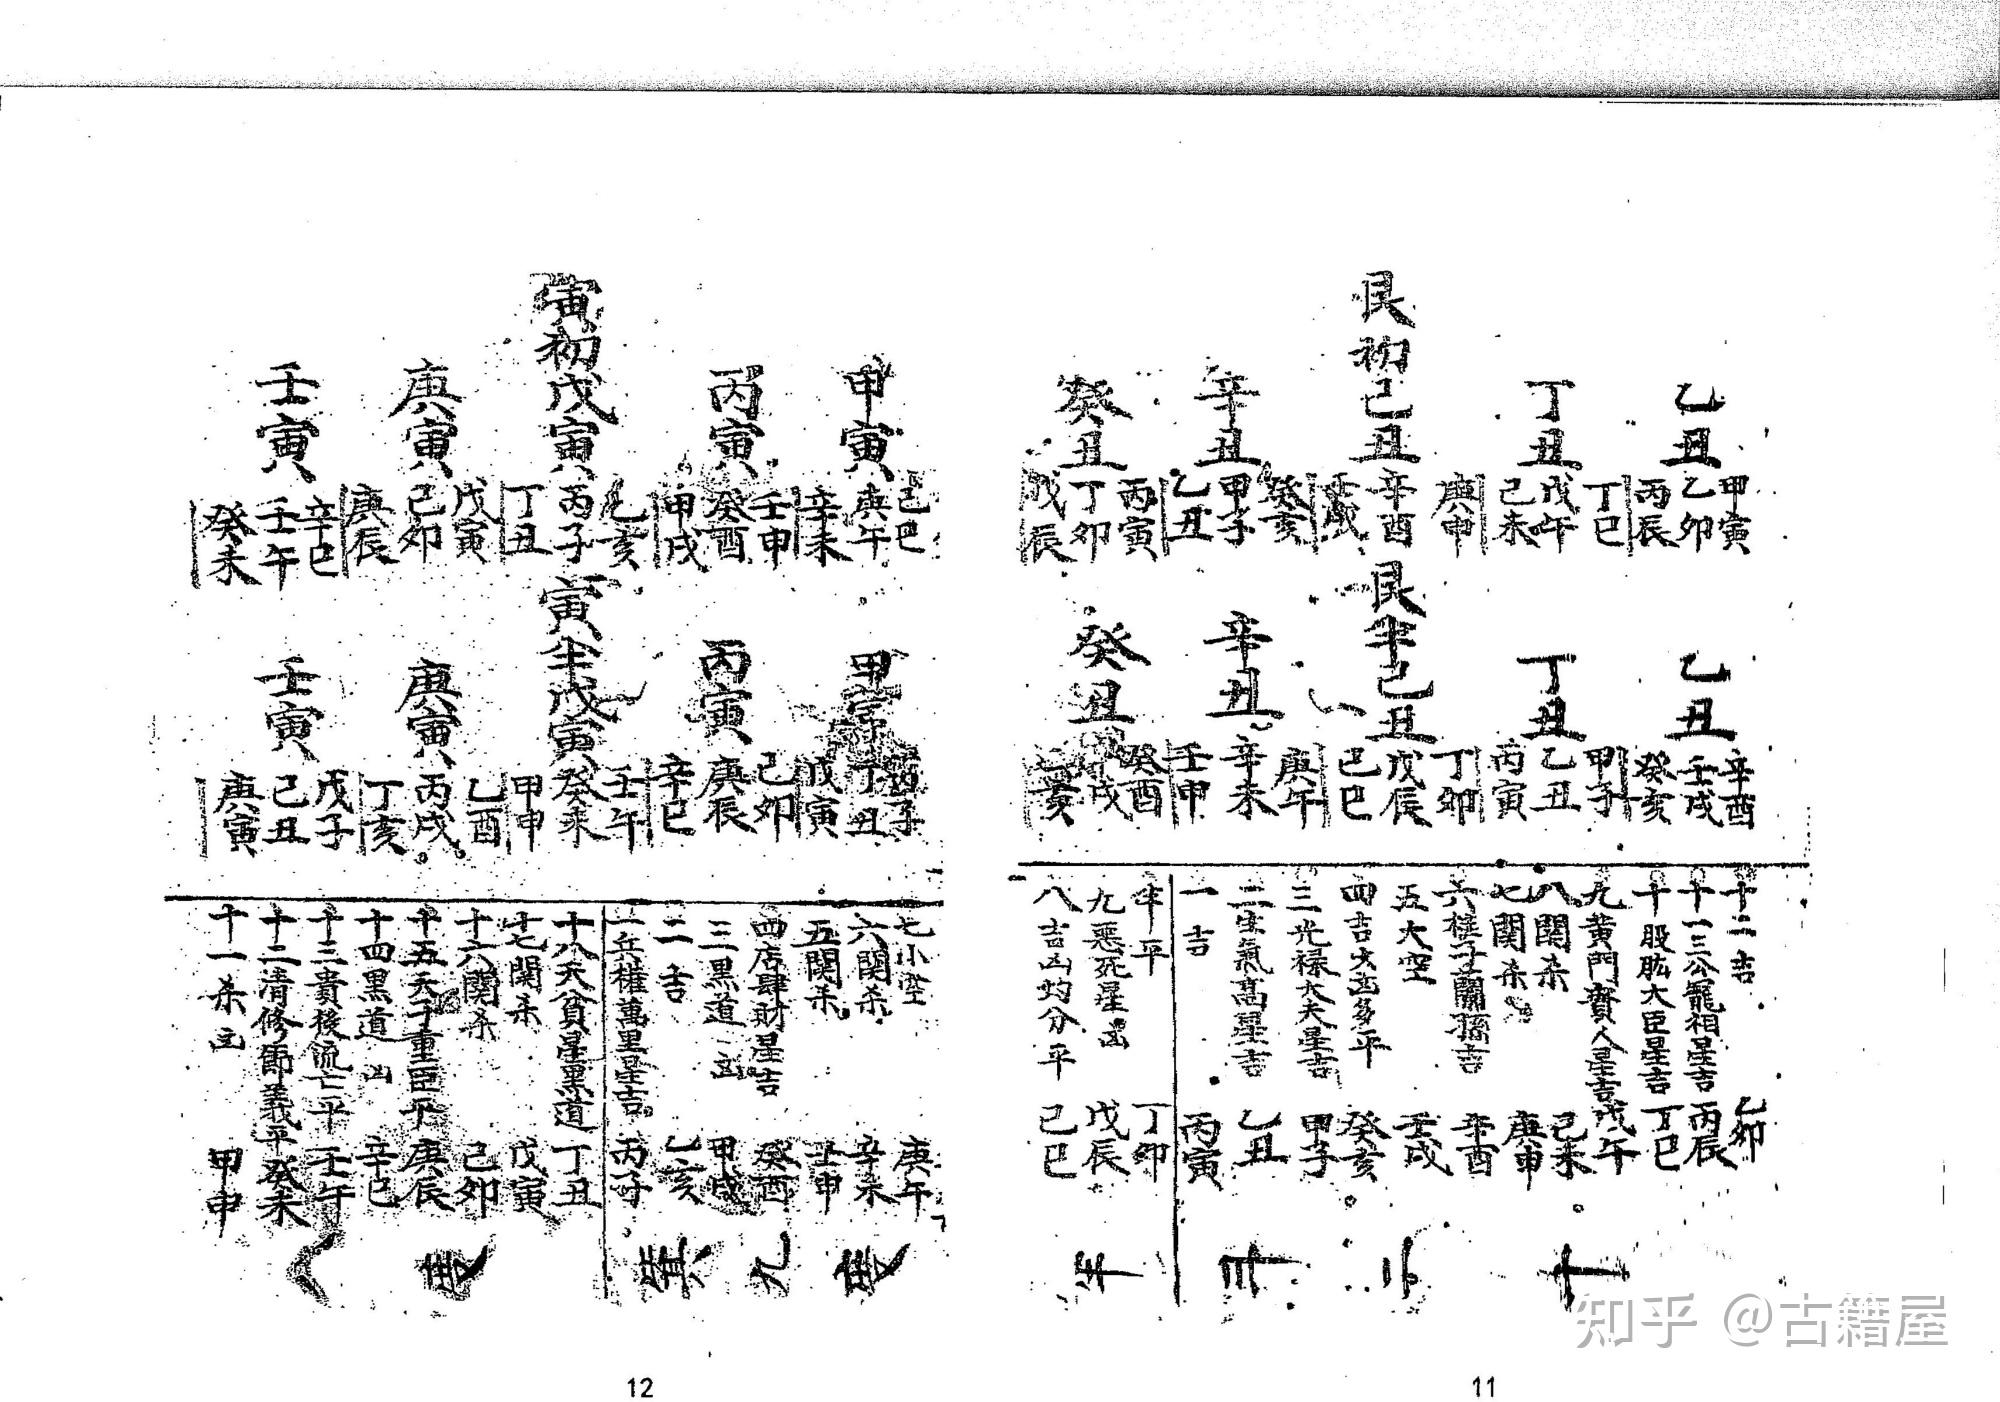 乙丑
甲寅
乙卯
丙辰
丁丑
丁巳
戊午
己未
艮初己丑
庚申
辛酉
壬戌
辛丑
癸亥
甲子
乙丑
癸丑
丙寅
丁卯
戊辰
乙丑
辛酉
壬戌
癸亥
丁丑
甲子
乙丑
丙寅
艮半己丑
丁卯
戊辰
己巳
辛丑
庚午
辛未
壬申
癸丑
癸酉
甲戌
乙亥
十二吉 乙卯
十一三公寵相星吉 丙辰
十股肱大臣星吉 丁巳
九黄門賓人星吉 戊午
八関杀 己未
七関杀 庚申
六權子蘭孫吉 辛酉
五大空 壬戌
四吉少凶多平 癸亥
三光禄大夫星吉 甲子
二生氣高星吉 乙丑
一吉 丙寅
半平 丁卯
九惡死星凶 戊辰
八吉凶均分平 己巳
十
11
甲寅
己巳
庚午
辛未
丙寅
壬申
癸酉
甲戌
寅初戊寅
乙亥
丙子
丁丑
庚寅
戊寅
己卯
庚辰
壬寅
辛巳
壬午
癸未
甲寅
丙子
丁丑
戊寅
丙寅
己卯
庚辰
辛巳
寅半戊寅
壬午
癸未
甲申
庚寅
乙酉
丙戌
丁亥
壬寅
戊子
己丑
庚寅
七小空 庚午
六関杀 辛未
五関杀 壬申
四店肆財星吉 癸酉
三黒道凶 甲戌
二吉 乙亥
一兵權萬里星吉 丙子
十八天貧星黒道 丁丑
十七関杀 戊寅
十六関杀 己卯
十五天子重臣平 庚辰
十四黒道凶 辛巳
十三貴後流亡平 壬午
十二清修節義平 癸未
十一杀凶 甲申
九
12
知乎 @古籍屋